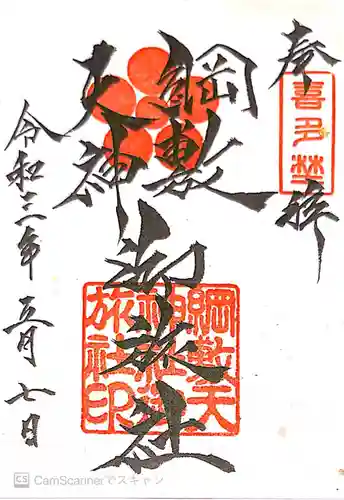 奉拝
喜多埜
綱敷
天神
御旅社
綱敷天
神社御
旅社印
令和三年五月七日
CamScannerでスキャン